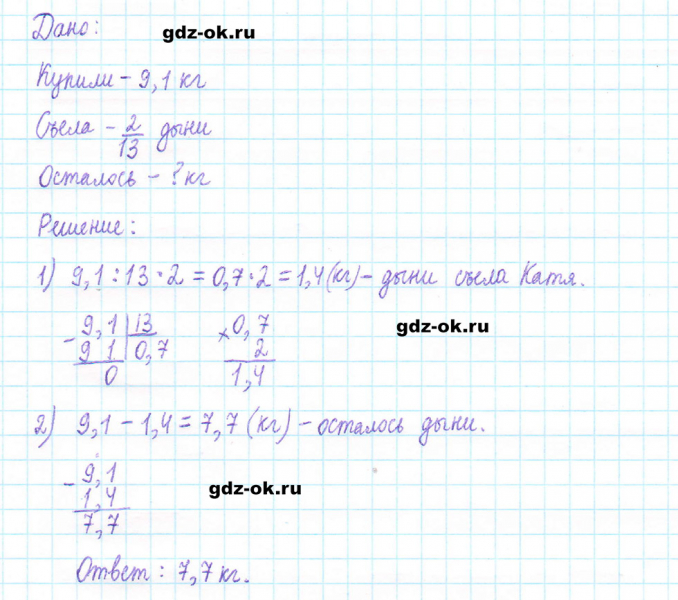 Дано:
gdz-ok.ru
Купили - 9,1 кг
Съела - 2/13 дыни
Осталось - ? кг
Решение:
1) 9,1 : 13 · 2 = 0,7 · 2 = 1,4 (кг) - дыни съела Катя.
- 9,1 | 13
9 1 | 0,7
0
× 0,7
2
1,4
gdz-ok.ru
2) 9,1 - 1,4 = 7,7 (кг) - осталось дыни.
- 9,1
1,4
7,7
gdz-ok.ru
Ответ : 7,7 кг.